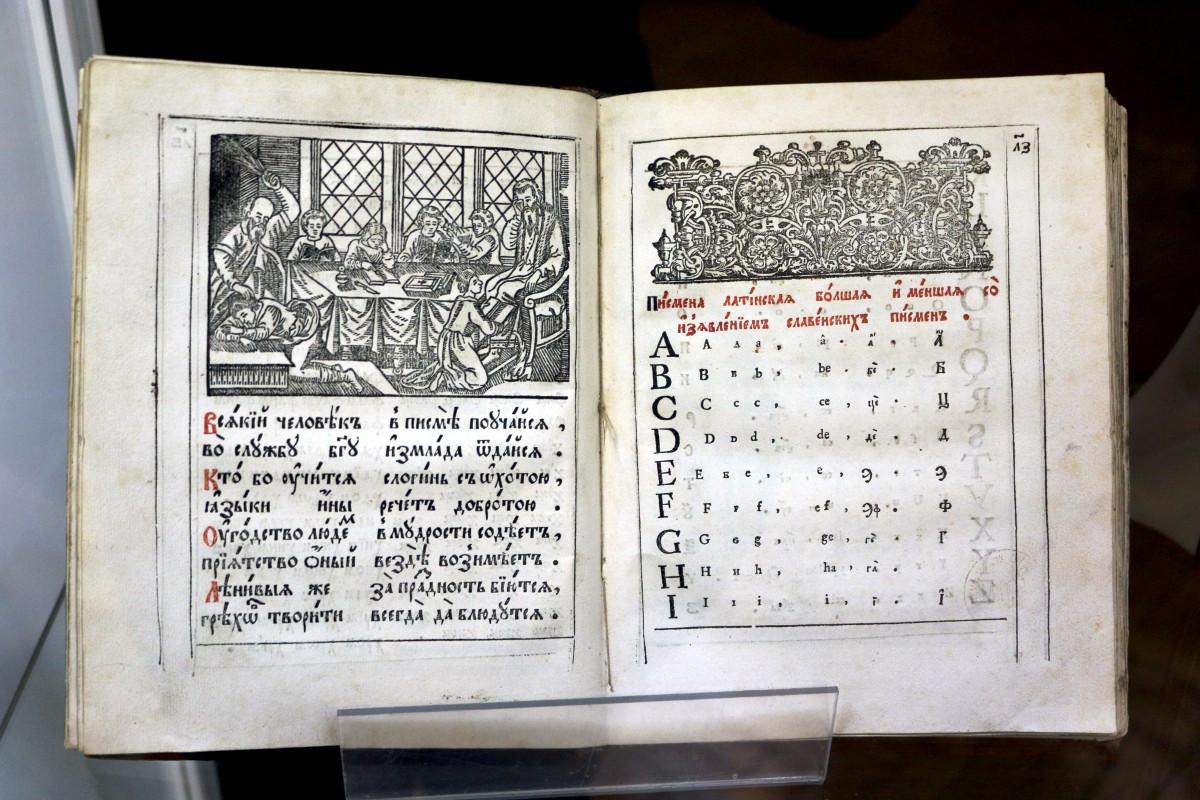 Всѧкїй человѣкъ в писмѣ поучайсѧ,
во службу бг҃у измлада ѿдайсѧ.
Кто бо оучитсѧ слогинь съ ѡхотою,
ꙗзыки ины речетъ добротою.
Оугодство людем в мудрости содѣетъ,
прїѧтство ѻный вездѣ возимѣетъ.
Лѣнивыѧ же за праздность бїютсѧ,
грѣхѡв творити всегда да блюдутсѧ.
л҃з
Писмена латінская болшая и меншая со
изѧвленїемъ славенскихъ писменъ.
A A A a , a . а . А
B B B b , be . бе . Б
C C C c , ce , це . Ц
D D D d , de , де . Д
E E E e , e , э . Э
F F F f , ef , эф . Ф
G G G g , ge , ге . Г
H H H h , ha , га .
I I I i , i , ї . Ї